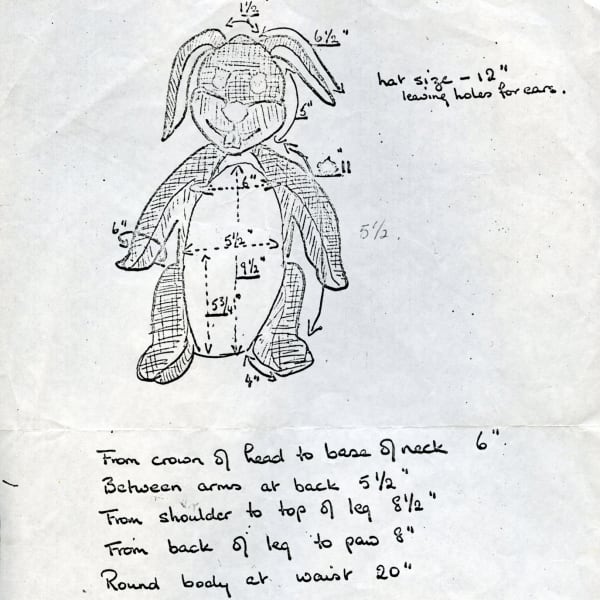 1½"
6½"
hat size - 12"
leaving holes for ears.
5"
11
6"
6"
5½"
5½.
9½"
5¾"
4"
From crown of head to base of neck 6".
Between arms at back 5½"
From shoulder to top of leg 8½"
From back of leg to paw 8"
Round body at waist 20"